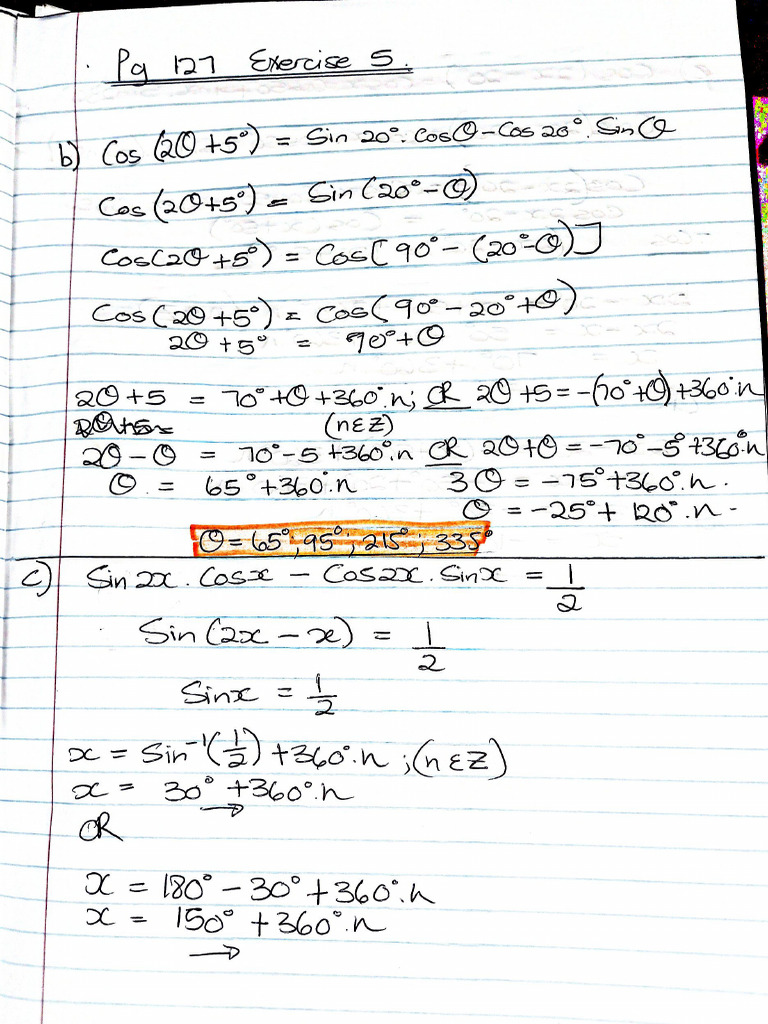 Pg 127 Exercise 5.
b) Cos (2θ +5°) = Sin 20°. Cosθ - Cos 20°. Sin θ
Cos (2θ+5°) = Sin (20° - θ)
Cos(2θ +5°) = Cos[90° - (20° - θ)]
Cos (2θ +5°) = Cos(90° - 20° + θ)
2θ +5° = 90° + θ
2θ +5 = 70° + θ + 360°.n; OR 2θ +5 = -(70° + θ) + 360°.n
(n ε Z)
2θ - θ = 70° - 5 + 360°.n OR 2θ + θ = -70° - 5° + 360°.n
θ = 65° + 360°.n 3θ = -75° + 360°.n.
θ = -25° + 120°.n.
θ = 65°; 95°; 215°; 335°
c) Sin 2x. Cosx - Cos2x. Sinx = 1/2
Sin (2x - x) = 1/2
Sinx = 1/2
x = Sin⁻¹(1/2) + 360°.n ; (n ε Z)
x = 30° + 360°.n
OR
x = 180° - 30° + 360°.n
x = 150° + 360°.n